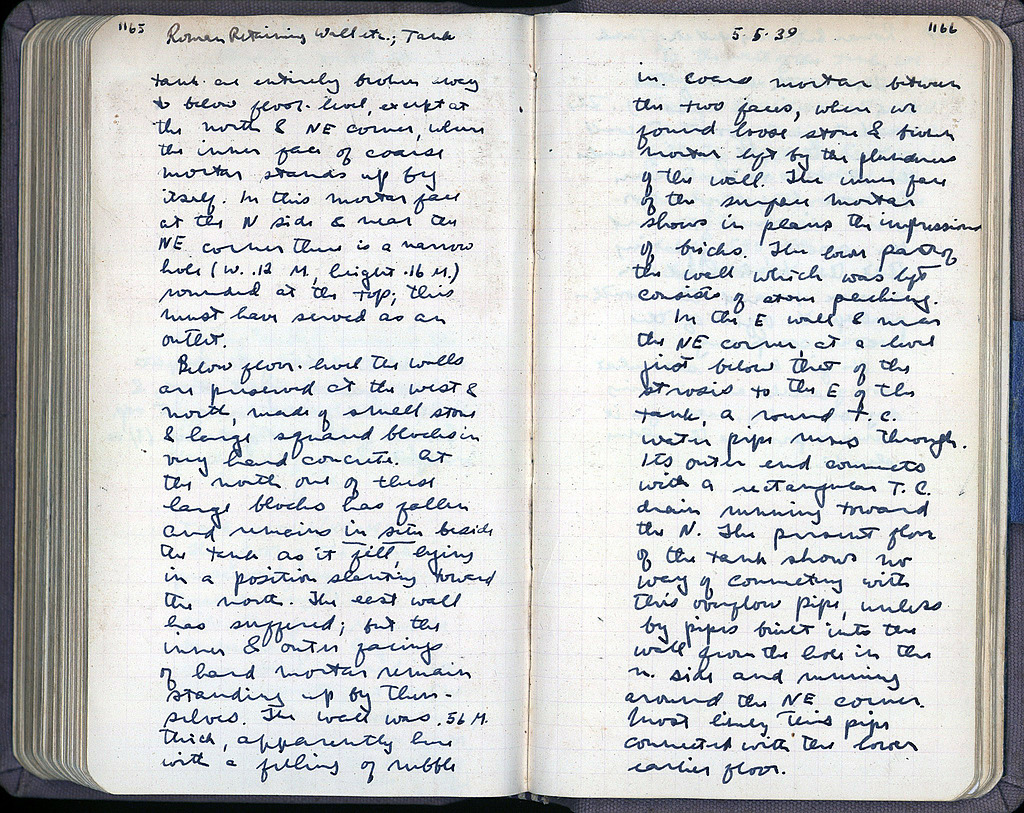 1165
Roman Retaining Wall etc.; Tank
tank are entirely broken away
to below floor-level, except at
the north & NE corner, where
the inner face of coarse
mortar stands up by
itself. In this mortar face
at the N side & near the
NE corner there is a narrow
hole (W. .12 M, height .16 M.)
rounded at the top; this
must have served as an
outlet.
Below floor-level the walls
are preserved at the west &
north, made of small stone
& large squared blocks in
very hard concrete. At
the north one of these
large blocks has fallen
and remains in situ beside
the tank as it fell, lying
in a position slanting toward
the north. The east wall
has suffered; but the
inner & outer facings
of hard mortar remain
standing up by them-
selves. The wall was .56 M.
thick, apparently here
with a filling of rubble
5.5.39
1166
in coarse mortar between
the two faces, where we
found loose stone & broken
mortar left by the plunderers
of the wall. The inner face
of the surface mortar
shows in places the impressions
of bricks. The lower part of
the wall which was left
consists of stone packing.
In the E wall & near
the NE corner, at a level
just below that of the
strosis to the E of the
tank, a round T.C.
water pipe runs through.
Its outer end connects
with a rectangular T.C.
drain running toward
the N. The present floor
of the tank shows no
way of connecting with
this overflow pipe, unless
by pipes built into the
wall from the hole in the
N. side and running
around the NE corner.
Most likely this pipe
connected with the lower
earlier floor.